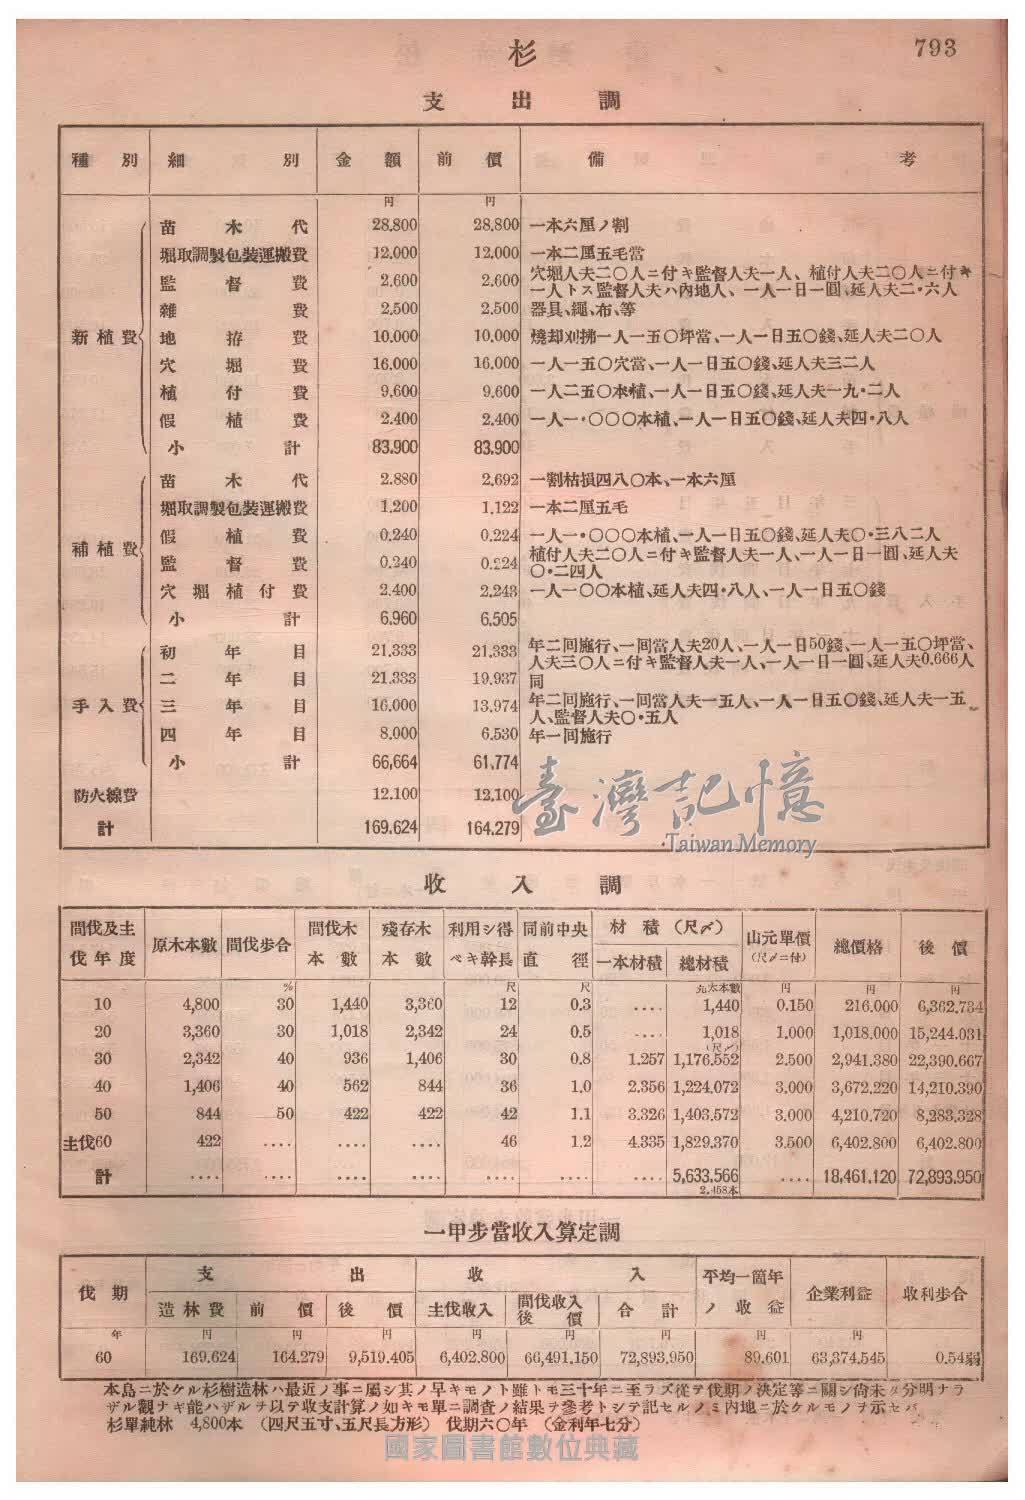 793
杉
支出調
種別 細別 金額 前價 備考
円 円
苗木代 28.800 28.800 一本六厘ノ割
堀取調製包裝運搬費 12.000 12.000 一本二厘五毛當
監督費 2.600 2.600 穴堀人夫二〇人ニ付キ監督人夫一人、植付人夫二〇人ニ付キ
一人トス監督人夫ハ內地人、一人一日一圓、延人夫二・六人
雜費 2.500 2.500 器具、繩、布、等
新植費 地拵費 10.000 10.000 燒却刈拂一人一五〇坪當、一人一日五〇錢、延人夫二〇人
穴堀費 16.000 16.000 一人一五〇穴當、一人一日五〇錢、延人夫三二人
植付費 9.600 9.600 一人二五〇本植、一人一日五〇錢、延人夫一九・二人
假植費 2.400 2.400 一人一・〇〇〇本植、一人一日五〇錢、延人夫四・八人
小計 83.900 83.900
苗木代 2.880 2.692 一割枯損四八〇本、一本六厘
堀取調製包裝運搬費 1.200 1.122 一本二厘五毛
補植費 假植費 0.240 0.224 一人一・〇〇〇本植、一人一日五〇錢、延人夫〇・三八二人
監督費 0.240 0.224 植付人夫二〇人ニ付キ監督人夫一人、一人一日一圓、延人夫
〇・二四人
穴堀植付費 2.400 2.243 一人一〇〇本植、延人夫四・八人、一人一日五〇錢
小計 6.960 6.505
初年目 21.333 21.333 年二回施行、一回當人夫20人、一人一日50錢、一人一五〇坪當、
人夫三〇人ニ付キ監督人夫一人、一人一日一圓、延人夫0.666人
二年目 21.333 19.937 同
手入費 三年目 16.000 13.974 年二回施行、一回當人夫一五人、一人一日五〇錢、延人夫一五
人、監督人夫〇・五人
四年目 8.000 6.530 年一回施行
小計 66,664 61,774
防火線費 12.100 12,100
計 169.624 164.279
臺灣記憶
Taiwan Memory
收入調
間伐及主伐年度 原木本數 間伐步合 間伐木本數 殘存木本數 利用シ得ベキ幹長 同前中央直徑 材積(尺〆) 一本材積 總材積 山元單價(尺〆ニ付) 總價格 後價
% 尺 尺 丸太本數 円 円 円
10 4,800 30 1,440 3,360 12 0.3 .... 1,440 0.150 216.000 6,362.734
20 3,360 30 1,018 2,342 24 0.5 .... 1,018 1.000 1,018.000 15,244.031
(尺〆)
30 2,342 40 936 1,406 30 0.8 1.257 1,176.552 2.500 2,941.380 22,390.667
40 1,406 40 562 844 36 1.0 2.356 1,224.072 3.000 3,672.220 14,210.390
50 844 50 422 422 42 1.1 3.326 1,403.572 3.000 4,210.720 8,283,328
主伐60 422 .... .... .... 46 1.2 4.335 1,829.370 3.500 6,402.800 6,402.800
計 .... .... .... .... .... .... .... 5,633.566 .... 18,461.120 72,893.950
2.458本
一甲步當收入算定調
伐期 支出 收入 平均一箇年ノ收益 企業利益 收利步合
造林費 前價 後價 主伐收入 間伐收入後價 合計
年 円 円 円 円 円 円 円 円
60 169.624 164.279 9,519.405 6,402.800 66,491.150 72,893,950 89.601 63,374.545 0.54弱
本島ニ於ケル杉樹造林ハ最近ノ事ニ屬シ其ノ早キモノト雖トモ三十年ニ至ラズ從テ伐期ノ決定等ニ關シ尙未ダ分明ナラ
ザル觀ナキ能ハザルヲ以テ收支計算ノ如キモ單ニ調查ノ結果ヲ參考トシテ記セルノミ內地ニ於ケルモノヲ示セバ
杉單純林 4,800本 (四尺五寸、五尺長方形) 伐期六〇年 (金利年七分)
國家圖書館數位典藏